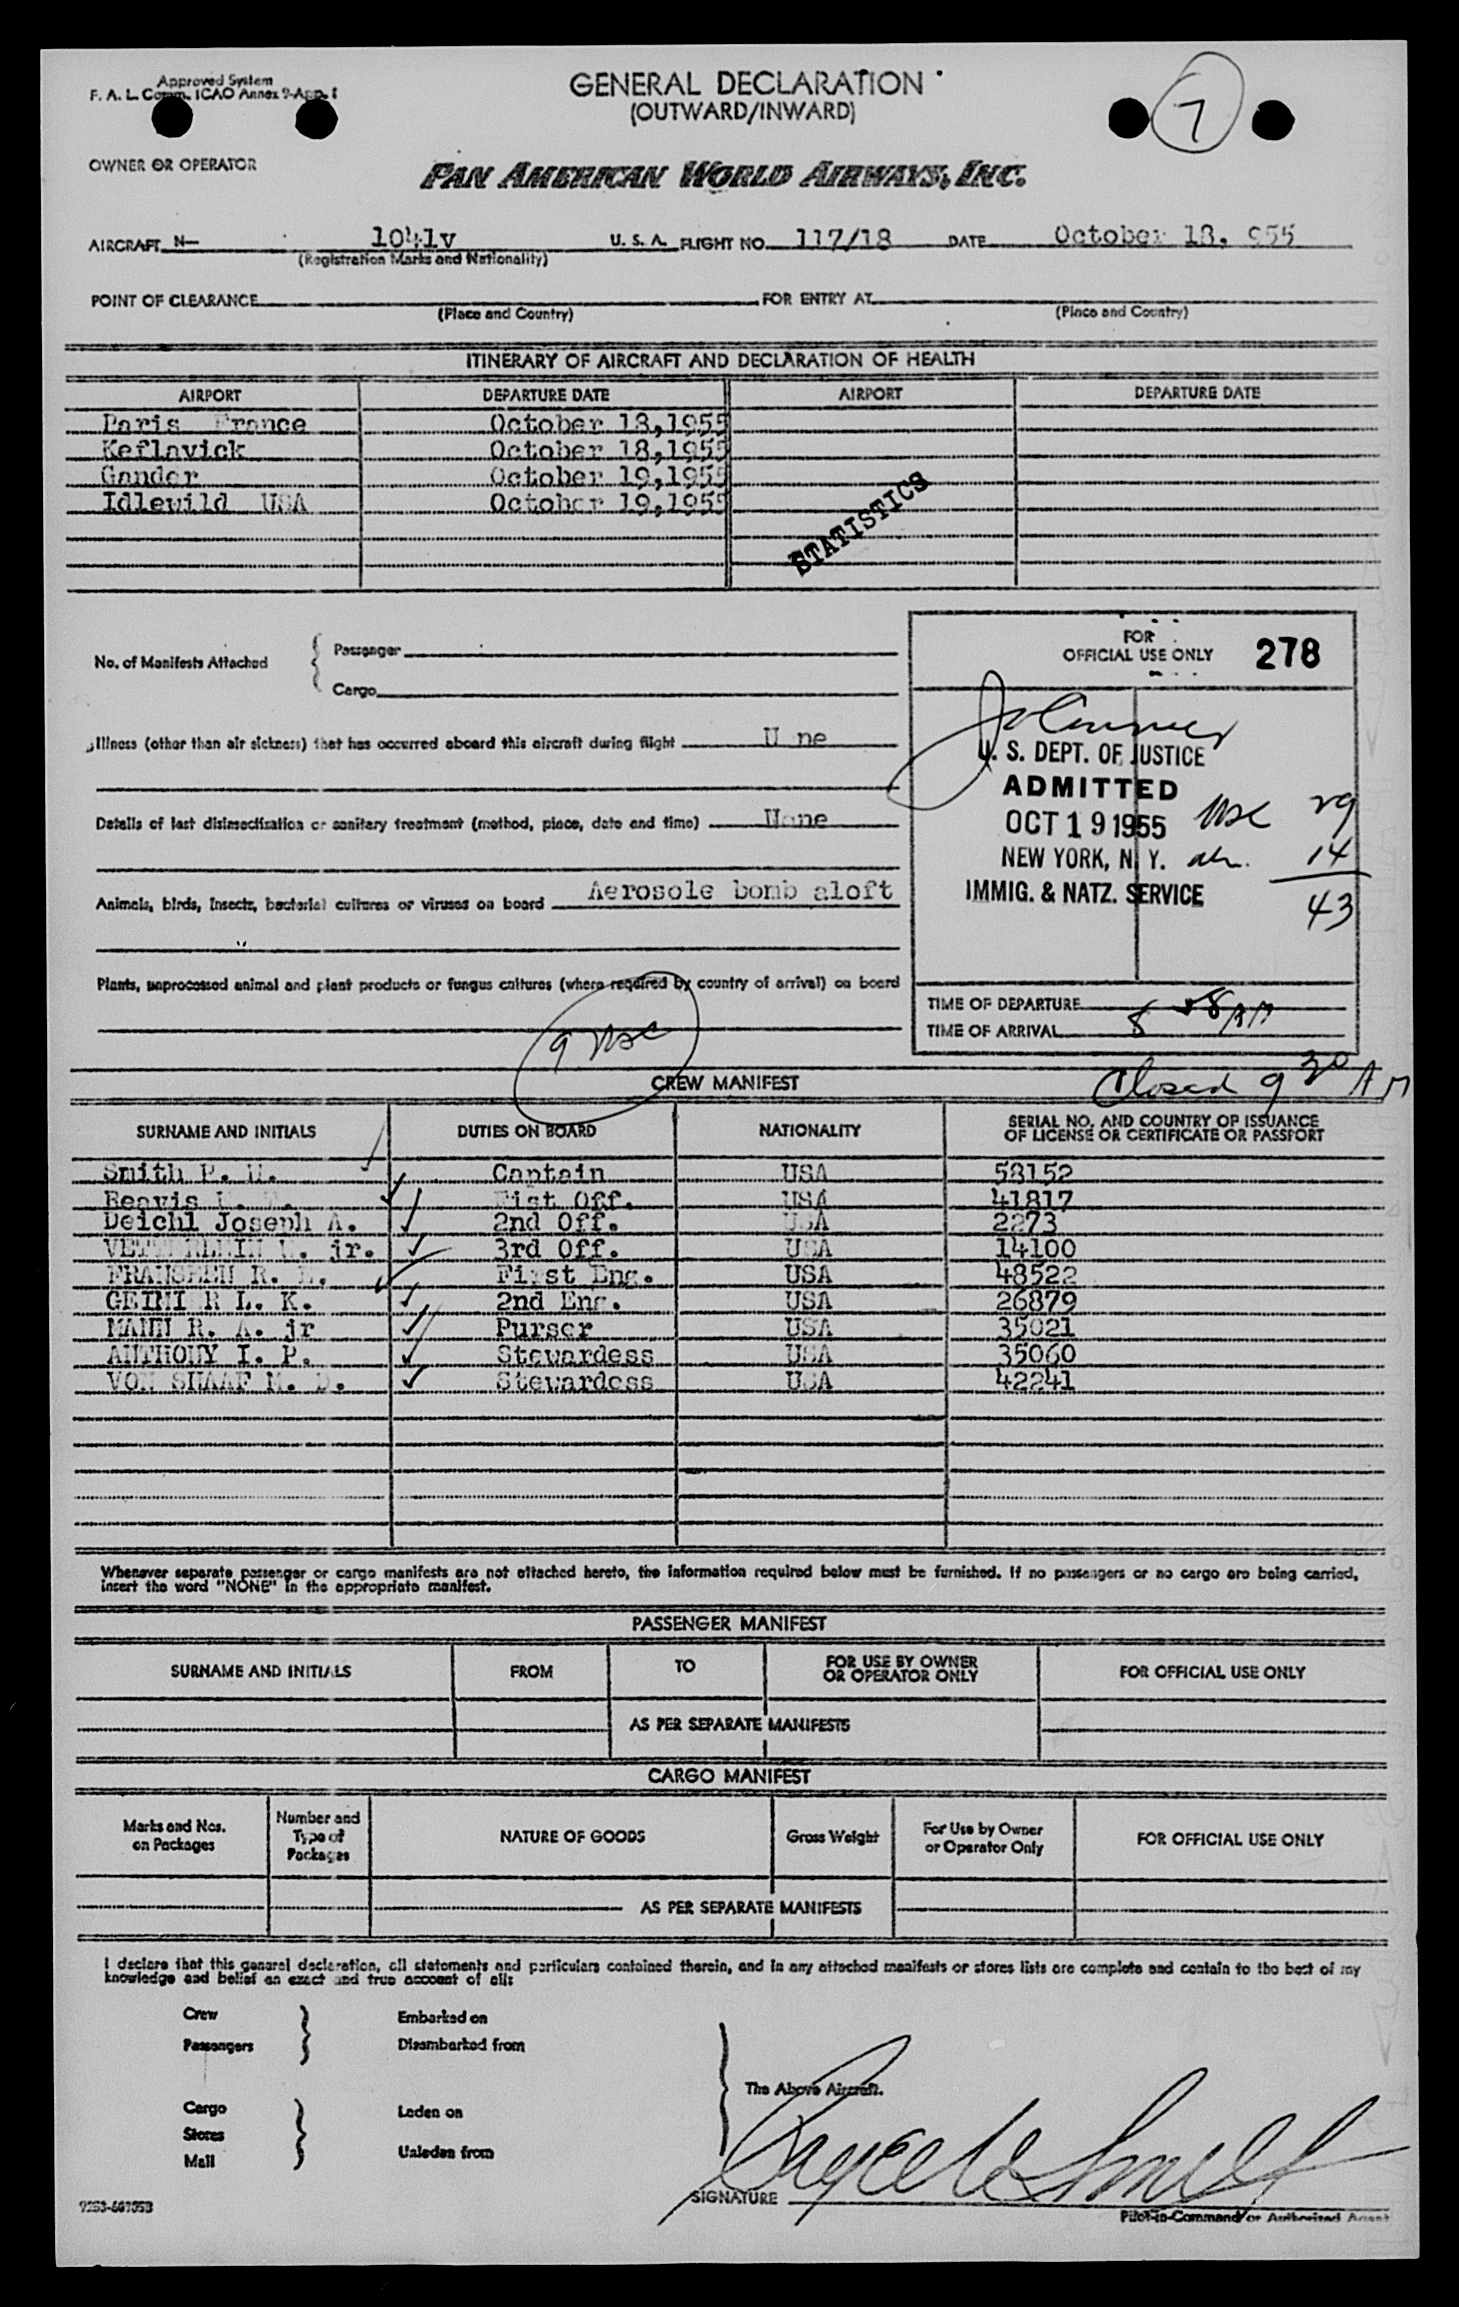 Approved System
F. A. L. Comm. ICAO Annex 9-App. 1
GENERAL DECLARATION
(OUTWARD/INWARD)
7
OWNER OR OPERATOR
PAN AMERICAN WORLD AIRWAYS, INC.
AIRCRAFT N— 1041v U. S. A. FLIGHT NO. 117/18 DATE October 18, 955
(Registration Marks and Nationality)
POINT OF CLEARANCE FOR ENTRY AT
(Place and Country) (Place and Country)
ITINERARY OF AIRCRAFT AND DECLARATION OF HEALTH
AIRPORT DEPARTURE DATE AIRPORT DEPARTURE DATE
Paris France October 18,1955
Keflavick October 18,1955
Gander October 19,1955
Idlewild USA October 19,1955
STATISTICS
No. of Manifests Attached
Passenger
Cargo
FOR
OFFICIAL USE ONLY 278
Illness (other than air sickness) that has occurred aboard this aircraft during flight None
Details of last disinsectization or sanitary treatment (method, place, date and time) None
Animals, birds, insects, bacterial cultures or viruses on board Aerosole bomb aloft
Plants, unprocessed animal and plant products or fungus cultures (where required by country of arrival) on board
U. S. DEPT. OF JUSTICE
ADMITTED
OCT 19 1955 usc 29
NEW YORK, N. Y. aln. 14
IMMIG. & NATZ. SERVICE 43
TIME OF DEPARTURE
TIME OF ARRIVAL 8 58 AM
9 usc
Closed 9 30 AM
CREW MANIFEST
SURNAME AND INITIALS DUTIES ON BOARD NATIONALITY SERIAL NO. AND COUNTRY OF ISSUANCE
OF LICENSE OR CERTIFICATE OR PASSPORT
Smith P. Captain USA 58152
Beavis Fist Off. USA 41817
Deichl Joseph A. 2nd Off. USA 2273
jr. 3rd Off. USA 14100
FRANSEEN R. First Eng. USA 48522
L. K. 2nd Eng. USA 26879
MANN R. A. jr Purser USA 35021
ANTHONY I. P. Stewardess USA 35060
VON SHAAF M. D. Stewardess USA 42241
Whenever separate passenger or cargo manifests are not attached hereto, the information required below must be furnished. If no passengers or no cargo are being carried,
insert the word "NONE" in the appropriate manifest.
PASSENGER MANIFEST
SURNAME AND INITIALS FROM TO FOR USE BY OWNER
OR OPERATOR ONLY FOR OFFICIAL USE ONLY
AS PER SEPARATE MANIFESTS
CARGO MANIFEST
Marks and Nos.
on Packages
Number and
Type of
Packages
NATURE OF GOODS
Gross Weight
For Use by Owner
or Operator Only
FOR OFFICIAL USE ONLY
AS PER SEPARATE MANIFESTS
I declare that this general declaration, all statements and particulars contained therein, and in any attached manifests or stores lists are complete and contain to the best of my
knowledge and belief an exact and true account of all:
Crew Embarked on
Passengers Disembarked from
The Above Aircraft.
Cargo Laden on
Stores
Mail Unladen from
SIGNATURE
Pilot-in-Command or Authorized Agent